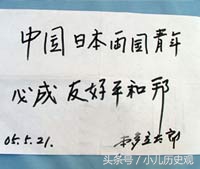 中国日本両国青年
必成友好平和邦
05.5.21.
头条号/小儿历史观